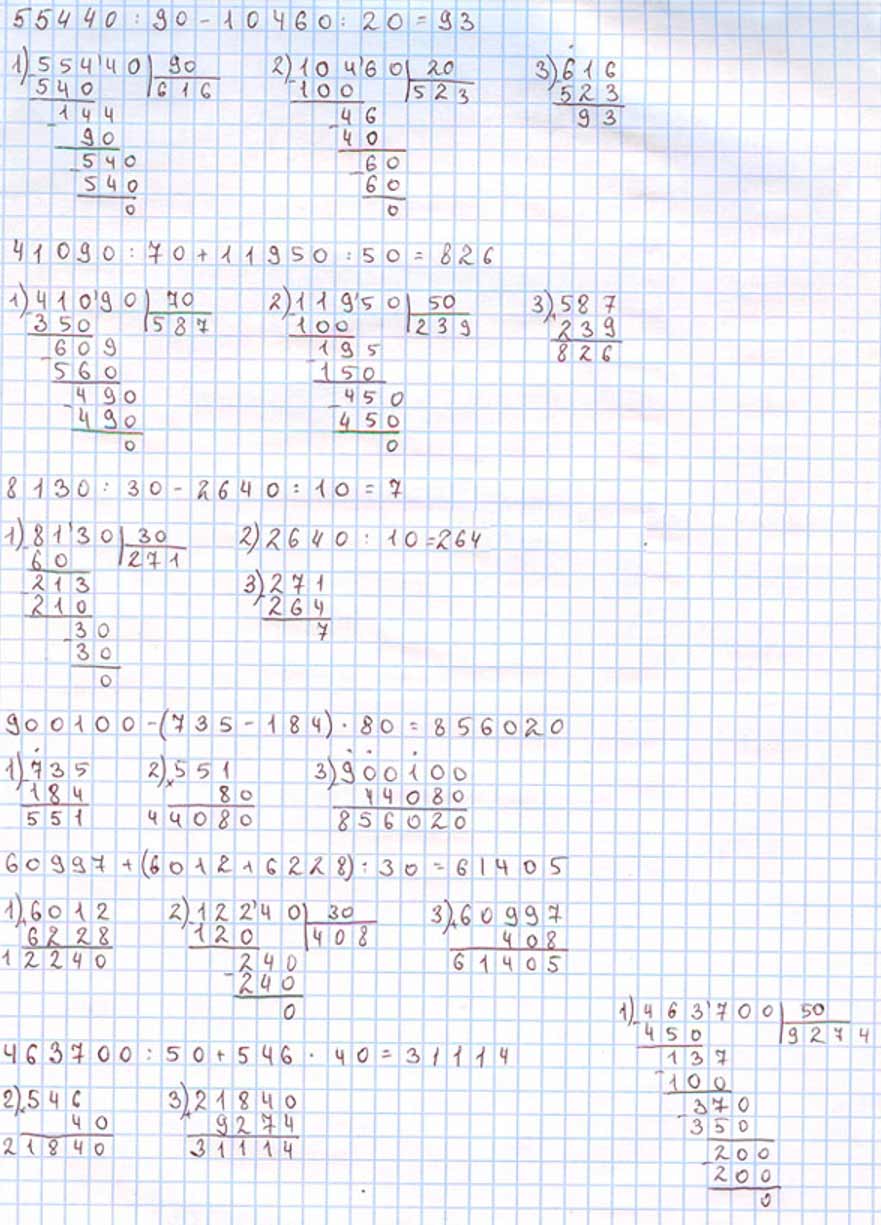 55440 : 90 - 10460 : 20 = 93
1) 554'40 90 2) 104'60 20 3) 616
540 616 100 523 523
144 46 93
90 40
540 60
540 60
0 0
41090 : 70 + 11950 : 50 = 826
1) 410'90 70 2) 119'50 50 3) 587
350 587 100 239 239
609 195 826
560 150
490 450
490 450
0 0
8130 : 30 - 2640 : 10 = 7
1) 81'30 30 2) 2640 : 10 = 264
60 271
213 3) 271
210 264
30 7
30
0
900100 - (735 - 184) · 80 = 856020
1) 735 2) 551 3) 900100
184 80 44080
551 44080 856020
60997 + (6012 + 6228) : 30 = 61405
1) 6012 2) 122'40 30 3) 60997
6228 120 408 408
12240 240 61405
240
0
463700 : 50 + 546 · 40 = 31114
1) 463'700 50
450 9274
137
100
370
350
200
200
0
2) 546 3) 21840
40 9274
21840 31114